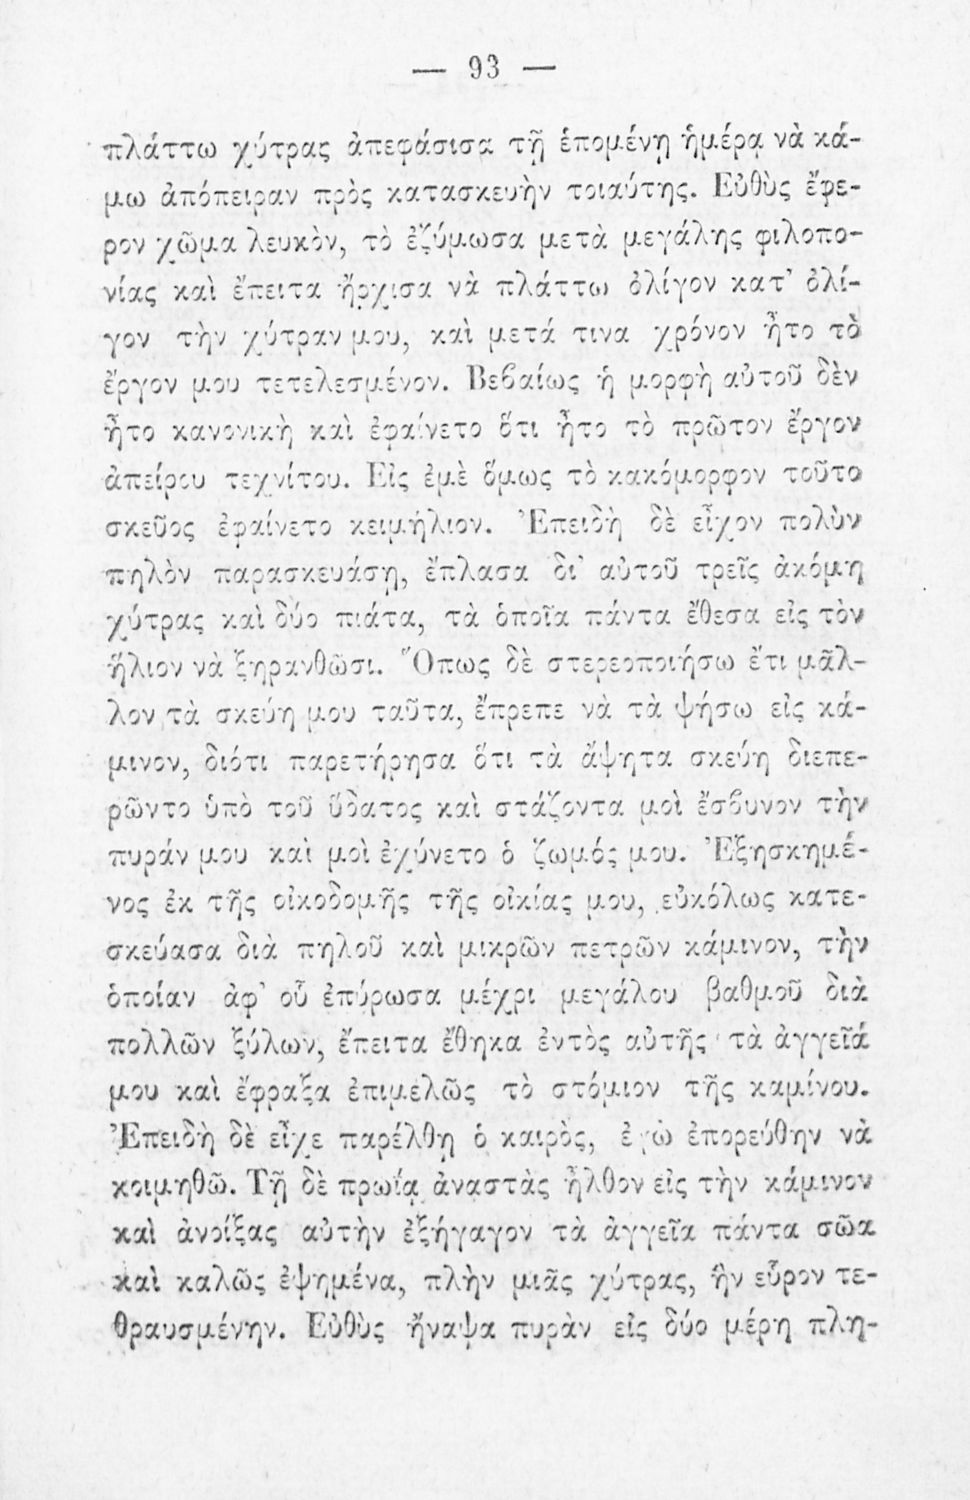 — 93 —
πλάττω χύτρας ἀπεφάσισα τῇ ἑπομένῃ ἡμέρᾳ νὰ κά-
μω ἀπόπειραν πρὸς κατασκευὴν τοιαύτης. Εὐθὺς ἔφε-
ρον χῶμα λευκὸν, τὸ ἐζύμωσα μετὰ μεγάλης φιλοπο-
νίας καὶ ἔπειτα ἤρχισα νὰ πλάττω ὀλίγον κατ’ ὀλί-
γον τὴν χύτραν μου, καὶ μετά τινα χρόνον ἦτο τὸ
ἔργον μου τετελεσμένον. Βεβαίως ἡ μορφὴ αὐτοῦ δὲν
ἦτο κανονικὴ καὶ ἐφαίνετο ὅτι ἦτο τὸ πρῶτον ἔργον
ἀπείρου τεχνίτου. Εἰς ἐμὲ ὅμως τὸ κακόμορφον τοῦτο
σκεῦος ἐφαίνετο κειμήλιον. Ἐπειδὴ δὲ εἶχον πολὺν
πηλὸν παρασκευάσῃ, ἔπλασα δι’ αὐτοῦ τρεῖς ἀκόμη
χύτρας καὶ δύο πιάτα, τὰ ὁποῖα πάντα ἔθεσα εἰς τὸν
ἥλιον νὰ ξηρανθῶσι. Ὅπως δὲ στερεοποιήσω ἔτι μᾶλ-
λον τὰ σκεύη μου ταῦτα, ἔπρεπε νὰ τὰ ψήσω εἰς κά-
μινον, διότι παρετήρησα ὅτι τὰ ἄψητα σκεύη διεπε-
ρῶντο ὑπὸ τοῦ ὕδατος καὶ στάζοντα μοὶ ἔσβυνον τὴν
πυράν μου καὶ μοὶ ἐχύνετο ὁ ζωμός μου. Ἐξησκημέ-
νος ἐκ τῆς οἰκοδομῆς τῆς οἰκίας μου, εὐκόλως κατε-
σκεύασα διὰ πηλοῦ καὶ μικρῶν πετρῶν κάμινον, τὴν
ὁποίαν ἀφ’ οὗ ἐπύρωσα μέχρι μεγάλου βαθμοῦ διὰ
πολλῶν ξύλων, ἔπειτα ἔθηκα ἐντὸς αὐτῆς τὰ ἀγγεῖά
μου καὶ ἔφραξα ἐπιμελῶς τὸ στόμιον τῆς καμίνου.
Ἐπειδὴ δὲ εἶχε παρέλθῃ ὁ καιρὸς, ἐγὼ ἐπορεύθην νὰ
κοιμηθῶ. Τῇ δὲ πρωίᾳ ἀναστὰς ἦλθον εἰς τὴν κάμινον
καὶ ἀνοίξας αὐτὴν ἐξήγαγον τὰ ἀγγεῖα πάντα σῶα
καὶ καλῶς ἐψημένα, πλὴν μιᾶς χύτρας, ἣν εὗρον τε-
θραυσμένην. Εὐθὺς ἤναψα πυρὰν εἰς δύο μέρη πλη-